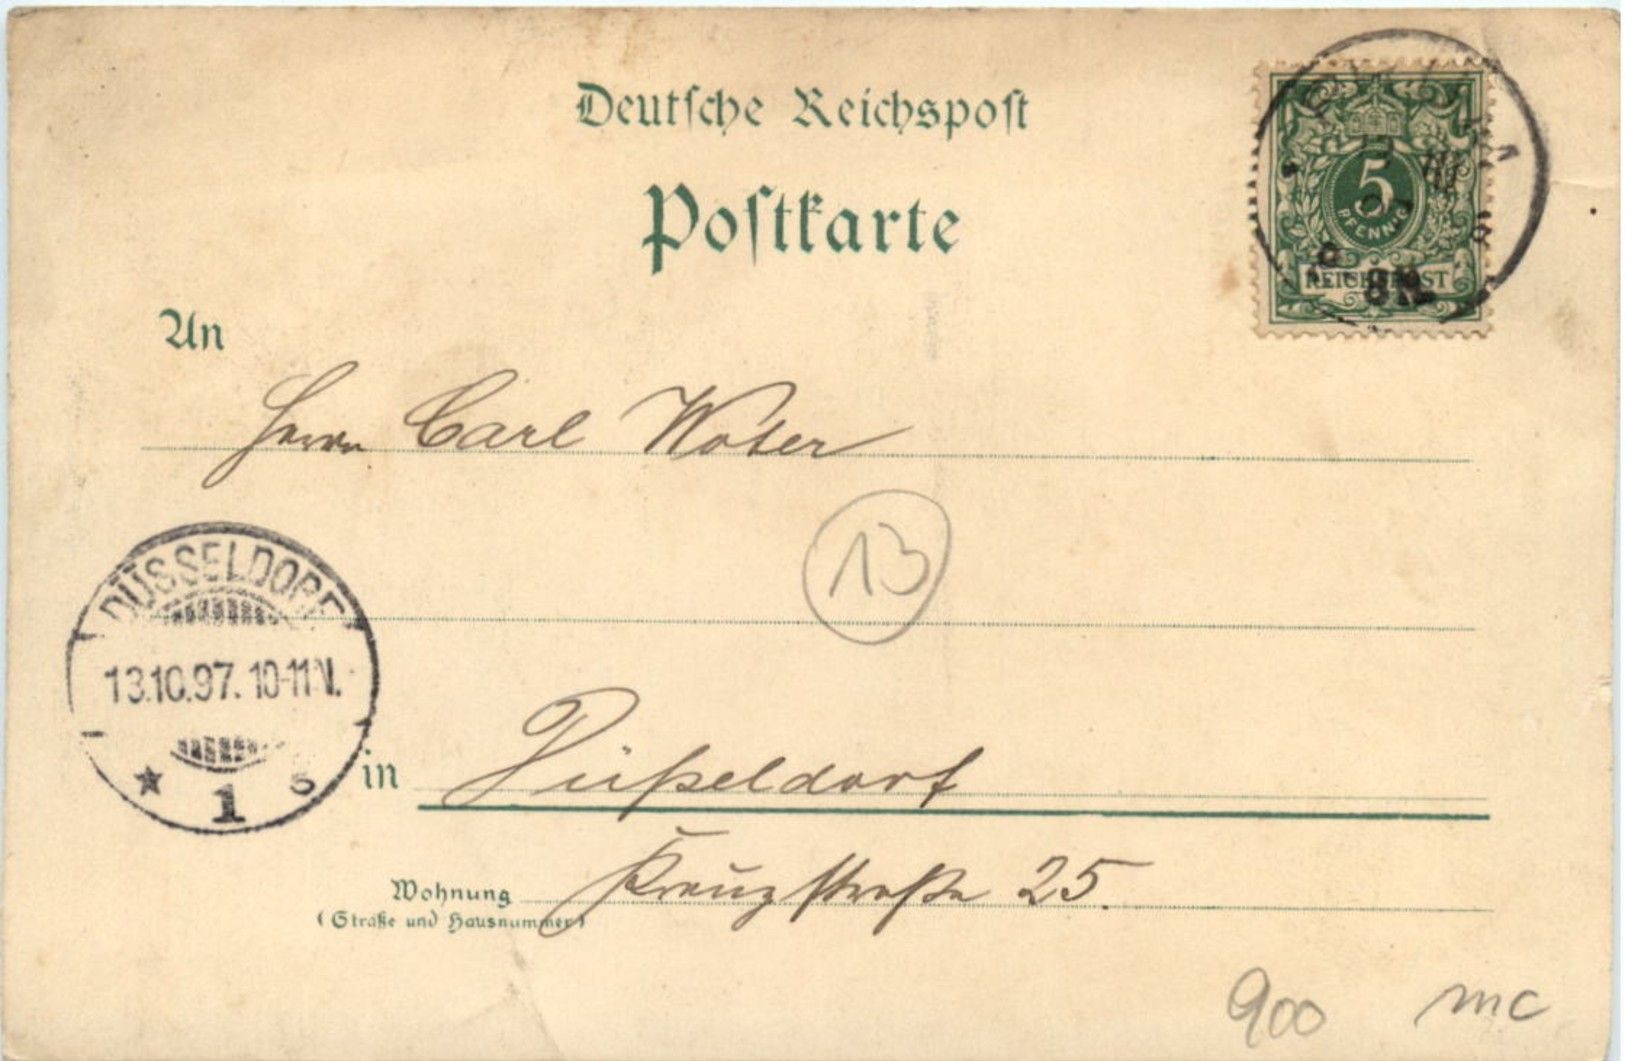 Deutsche Reichspost
Postkarte
5
PFENNIG
REICHSPOST
An
Herrn Carl Woter
13
DÜSSELDORF
13.10.97. 10-11N.
★ 1 s
in Düßeldorf
Wohnung Kreuzstraße 25.
(Straße und Hausnummer)
900 mc